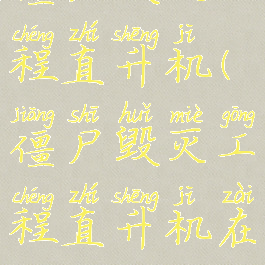 chéng zhí shēng jī
程直升机(
jiāng shī huǐ miè gōng
僵尸毁灭工
chéng zhí shēng jī zài
程直升机在